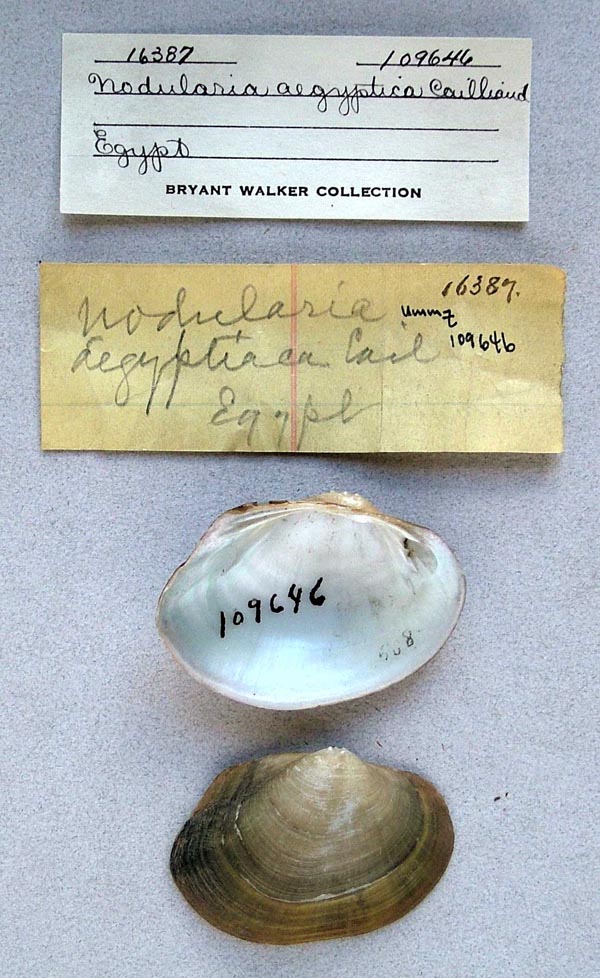 16387 109646
Nodularia aegyptica Cailliaud
Egypt
BRYANT WALKER COLLECTION
16387.
Nodularia
ummz
aegyptiaca Cail
109646
Egypt
109646
608